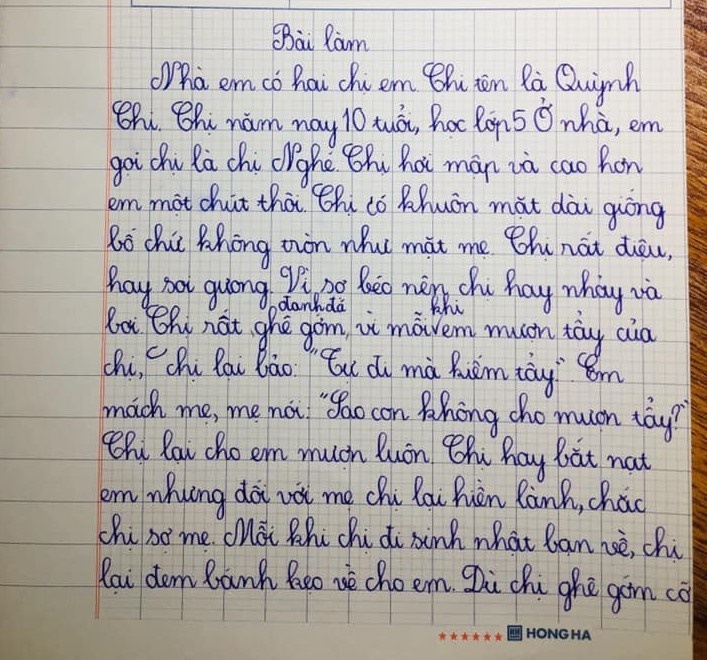 Bài làm
Nhà em có hai chị em. Chị tên là Quỳnh
Chi. Chị năm nay 10 tuổi, học lớp 5 Ở nhà, em
gọi chị là chị Nghé. Chị hơi mập và cao hơn
em một chút thôi. Chị có khuôn mặt dài giống
bố chứ không tròn như mặt mẹ. Chị rất điệu,
hay soi gương. Vì sợ béo nên chị hay nhảy và
đanh đá khi
bơi. Chị rất ghê gớm, vì mỗi em mượn tẩy của
chị, chị lại bảo: "Tự đi mà kiếm tẩy". Em
mách mẹ, mẹ nói: "Sao con không cho mượn tẩy?"
Chị lại cho em mượn luôn. Chị hay bắt nạt
em nhưng đối với mẹ chị lại hiền lành, chắc
chị sợ mẹ. Mỗi khi chị đi sinh nhật bạn về, chị
lại đem bánh kẹo về cho em. Dù chị ghê gớm cỡ
HH HONG HA